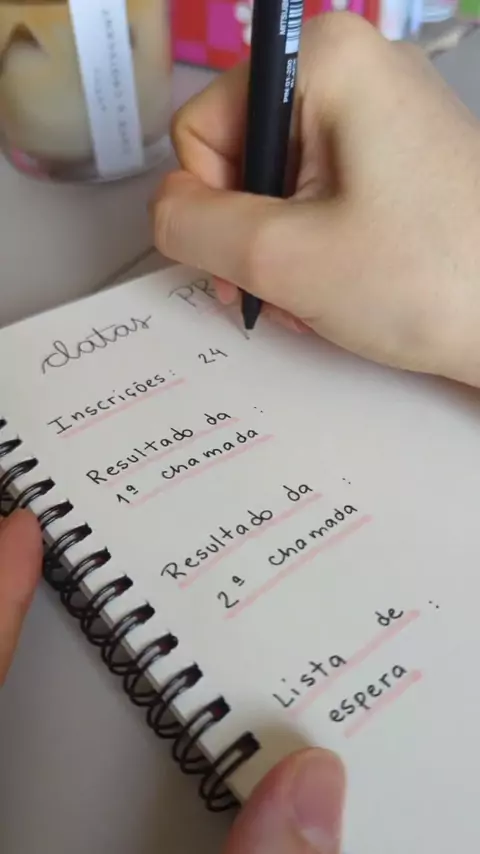 datas PR
Inscrições: 24
Resultado da :
1ª chamada
Resultado da :
2ª chamada
Lista de :
espera